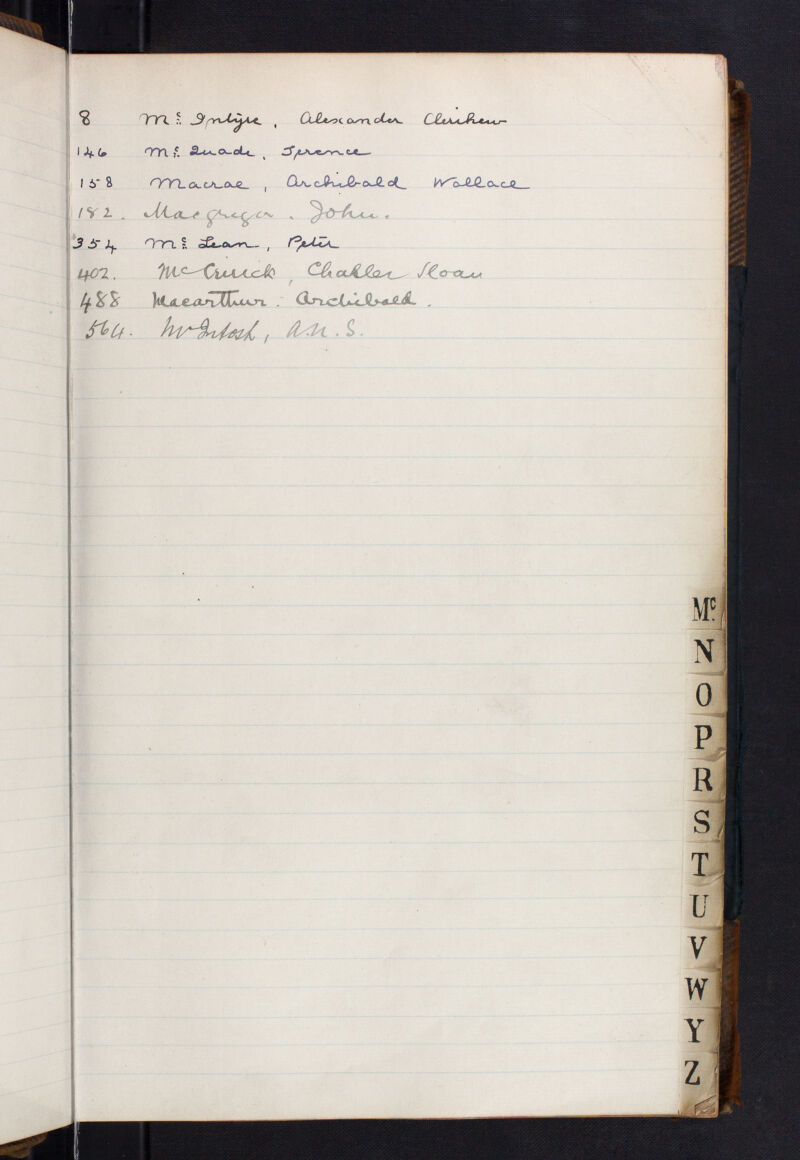 8 Mc Intyre, Alexander Clerihew
146 Mc Quade, Terence
158 Macrae, Archibald Wallace
182. Macgregor. John.
354 Mc Lean, Peter
402. McCrurick, Charles Sloan
488 Macarthur. Archibald.
564. McIntosh, A.N.S.
Mc.
N
O
P
R
S
T
U
V
W
Y
Z